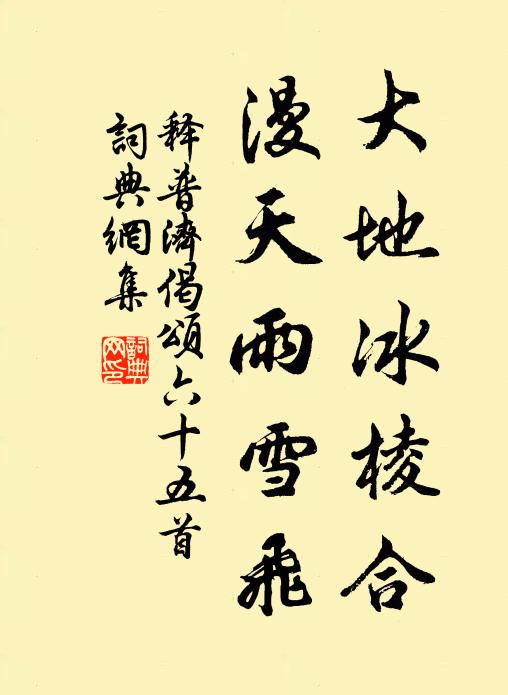 大地冰棱合
漫天雨雪飛
释普濟偈頌六十五首
詞典網集
詞典网印